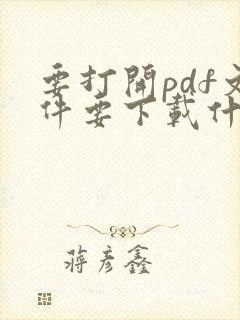 要打開pdf文
件要下載什
蔣彥鑫